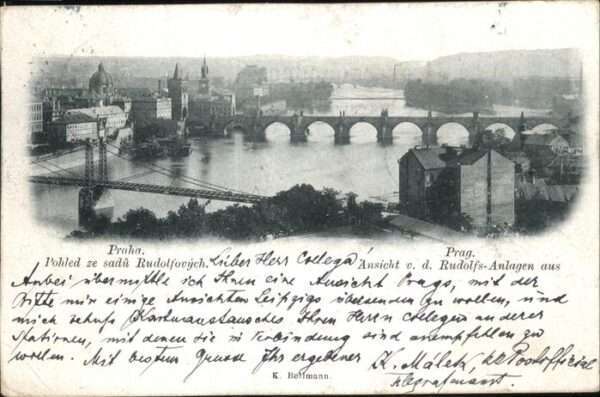 Praha. Prag.
Pohled ze sadů Rudolfových. Ansicht v. d. Rudolfs-Anlagen aus
Lieber Herr Collega!
Anbei übermittle ich Ihnen eine Ansicht Prags, mit der
Bitte mir einige Ansichten Leipzigs übersenden zu wollen, und
mich behufs Kartenaustausches Ihren Herrn Collegen anderer
Stationen, mit denen die in Verbindung sind anempfehlen zu
wollen. Mit bestem Gruße Ihr ergebener
K. Maletz, kk Postofficial
Telegrafenamt.
K. Bellmann.